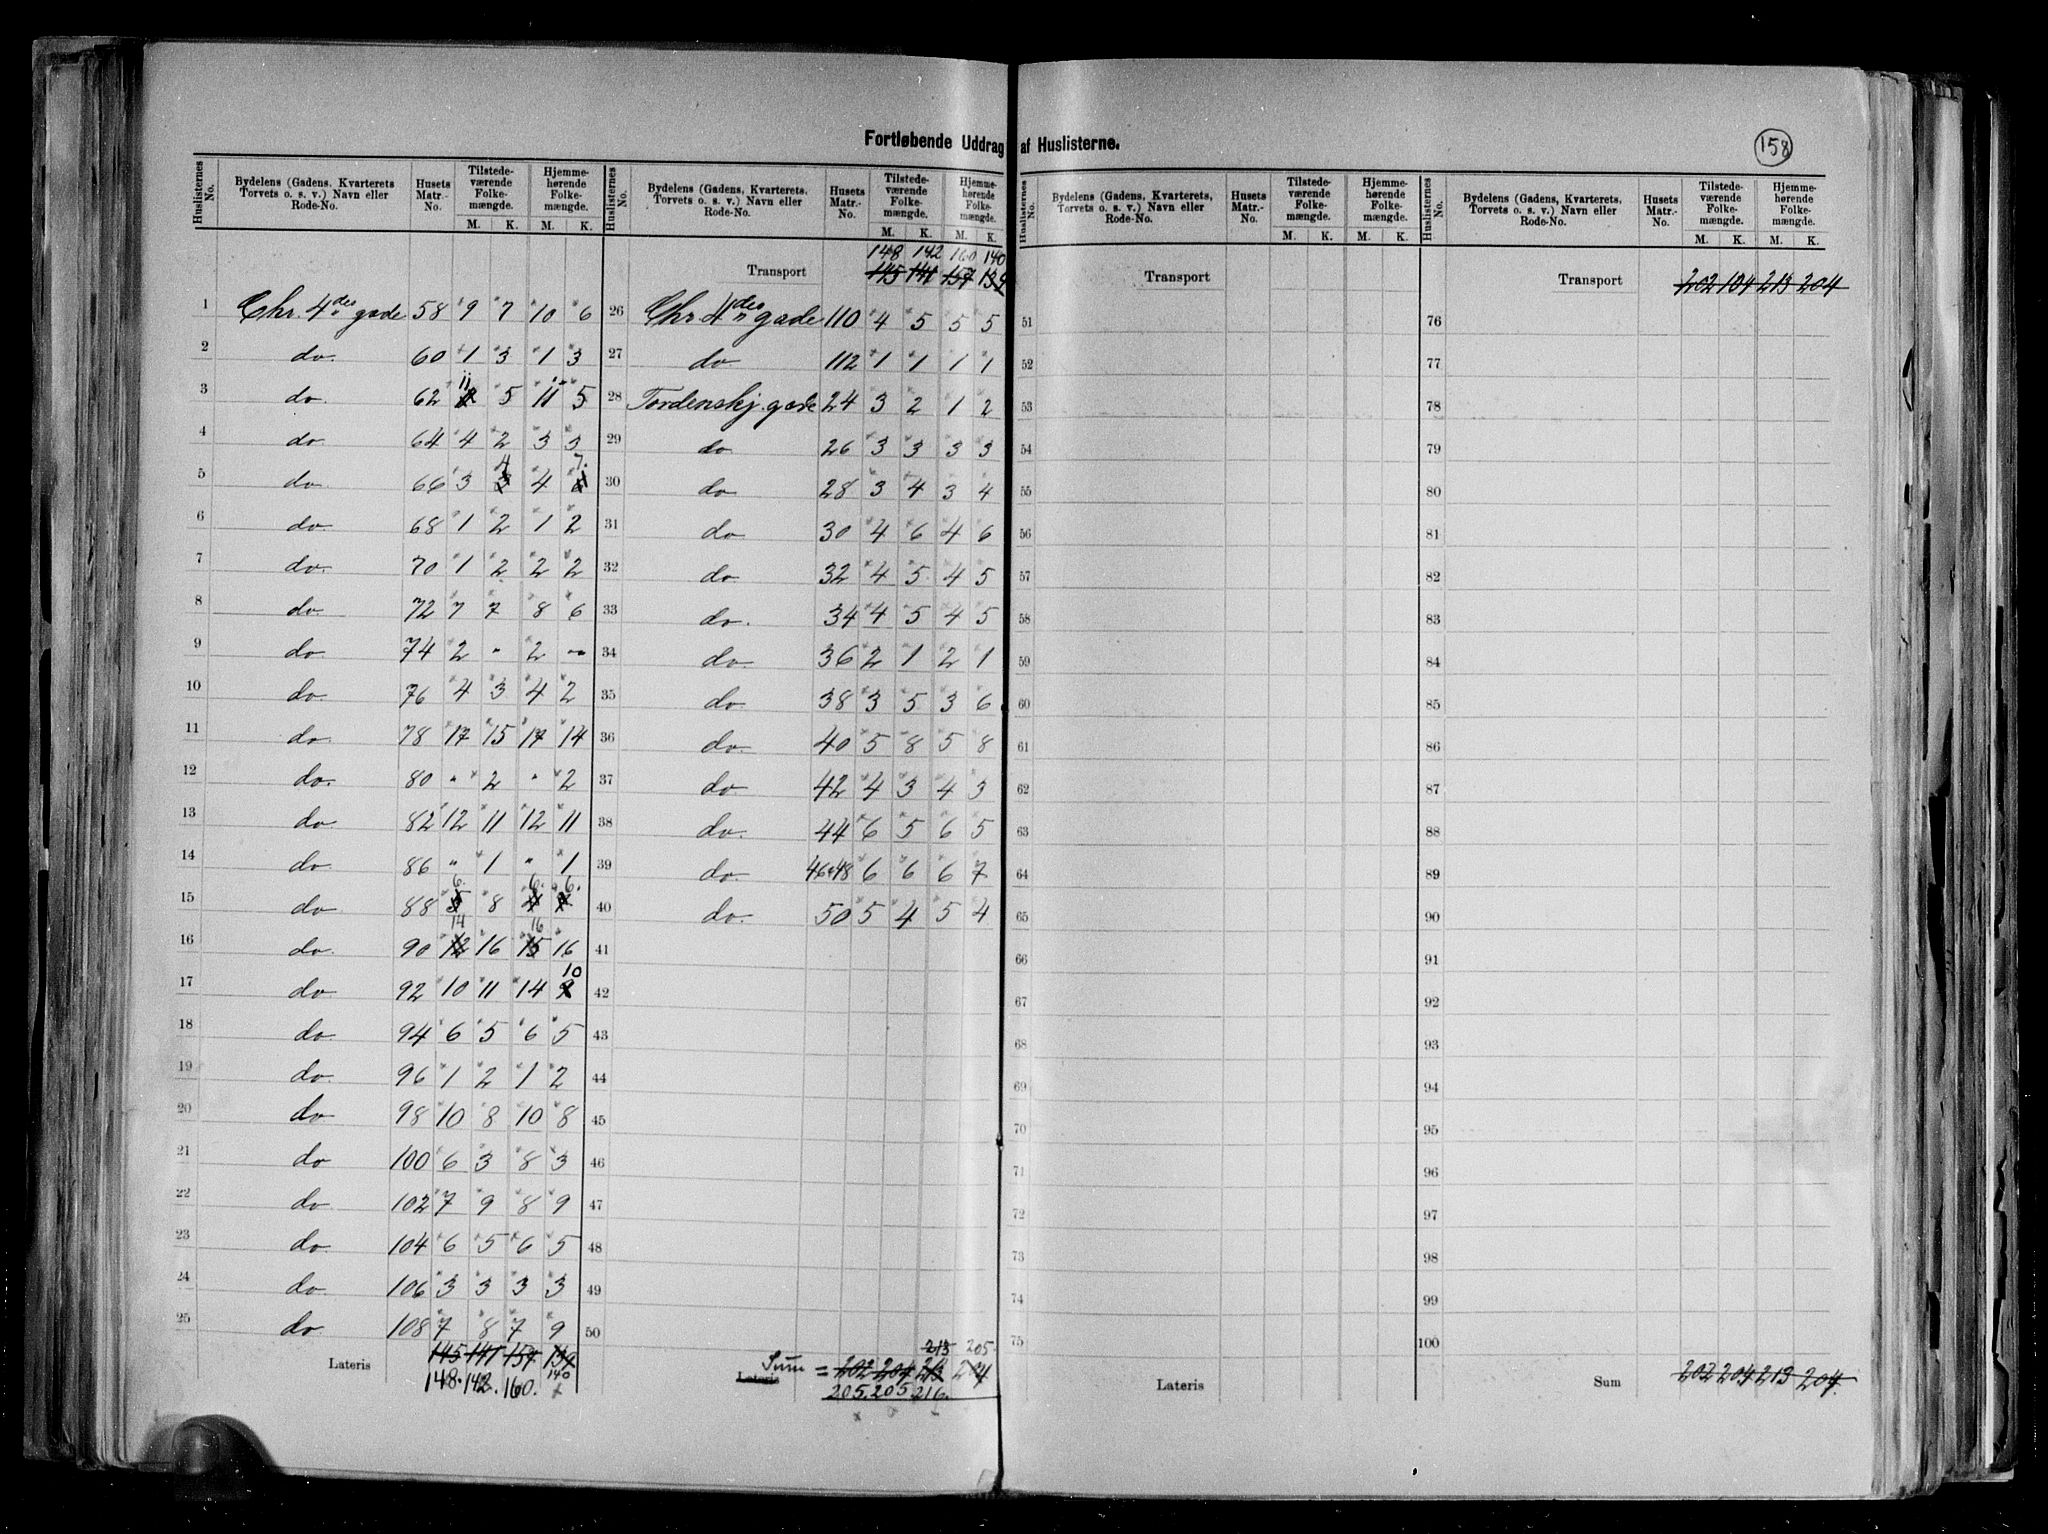 Fortløbende Uddrag af Huslisterne.
158
Huslisternes No. Bydelens (Gadens, Kvarterets Torvets o. s. v.) Navn eller Rode-No. Husets Matr.-No. Tilstedeværende Folkemængde. M. K. Hjemmehørende Folkemængde. M. K.
1 Chr. 4des gade 58 9 7 10 6
2 do. 60 1 3 1 3
3 do. 62 11 5 11 5
4 do. 64 4 2 3 3
5 do. 66 3 4 4 7.
6 do. 68 1 2 1 2
7 do. 70 1 2 2 2
8 do. 72 7 7 8 6
9 do. 74 2 " 2 "
10 do. 76 4 3 4 2
11 do. 78 17 15 17 14
12 do. 80 " 2 " 2
13 do. 82 12 11 12 11
14 do. 86 " 1 " 1
15 do. 88 6. 8 6. 6.
16 do. 90 14 16 16 16
17 do. 92 10 11 14 10
18 do. 94 6 5 6 5
19 do. 96 1 2 1 2
20 do. 98 10 8 10 8
21 do. 100 6 3 8 3
22 do. 102 7 9 8 9
23 do. 104 6 5 6 5
24 do. 106 3 3 3 3
25 do. 108 7 8 7 9
Lateris 145 141 157 139
148. 142. 160. 140
Huslisternes No. Bydelens (Gadens, Kvarterets, Torvets o. s. v.) Navn eller Rode-No. Husets Matr.-No. Tilstedeværende Folkemængde. M. K. Hjemmehørende Folkemængde. M. K.
148 142 160 140
Transport 145 141 157 139
26 Chr 4des gade 110 4 5 5 5
27 do. 112 1 1 1 1
28 Tordenskj. gade 24 3 2 1 2
29 do 26 3 3 3 3
30 do 28 3 4 3 4
31 do 30 4 6 4 6
32 do 32 4 5 4 5
33 do. 34 4 5 4 5
34 do. 36 2 1 2 1
35 do. 38 3 5 3 6
36 do. 40 5 8 5 8
37 do 42 4 3 4 3
38 do. 44 6 5 6 5
39 do. 46+48 6 6 6 7
40 do. 50 5 4 5 4
41
42
43
44
45
46
47
48
49
50
213 205.
Sum Lateris = 202 204 213 204
205. 205. 216.
Huslisternes No. Bydelens (Gadens, Kvarterets, Torvets o. s. v.) Navn eller Rode-No. Husets Matr.-No. Tilstedeværende Folkemængde. M. K. Hjemmehørende Folkemængde. M. K.
Transport
51
52
53
54
55
56
57
58
59
60
61
62
63
64
65
66
67
68
69
70
71
72
73
74
75
Lateris
Huslisternes No. Bydelens (Gadens, Kvarterets, Torvets o. s. v.) Navn eller Rode-No. Husets Matr.-No. Tilstedeværende Folkemængde. M. K. Hjemmehørende Folkemængde. M. K.
Transport 202 204 213 204
76
77
78
79
80
81
82
83
84
85
86
87
88
89
90
91
92
93
94
95
96
97
98
99
100
Sum 202 204 213 204.